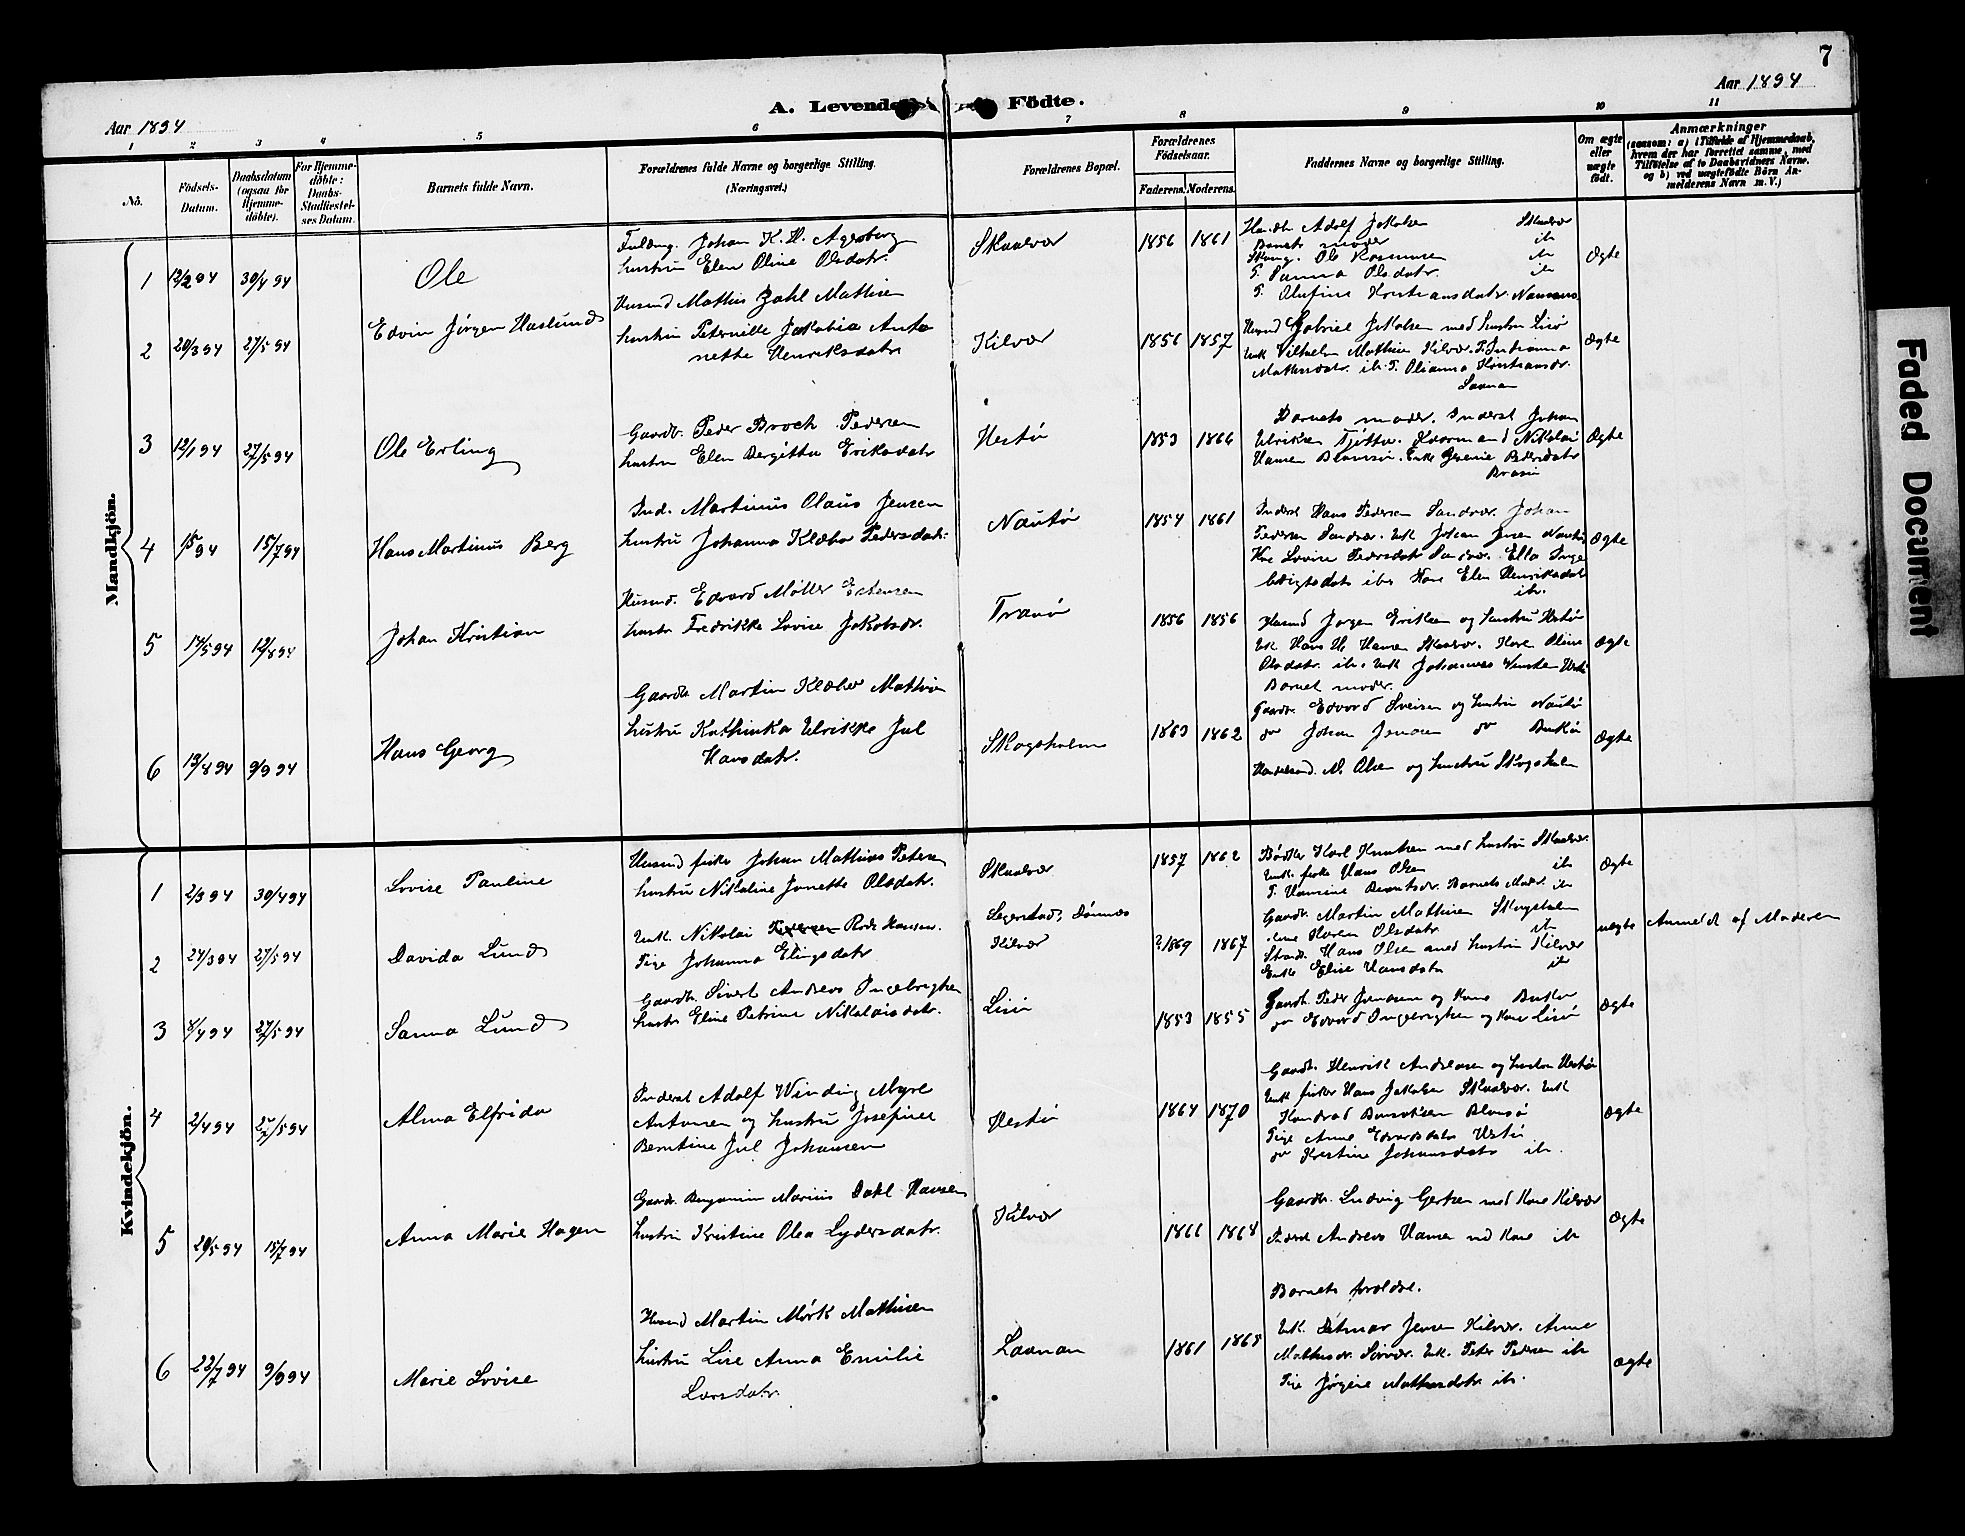 7
Aar 1894
Aar 1894
A. Levende Födte.
1 2 3 4 5 6 7 8 9 10 11
No.
Födsels-Datum.
Daabsdatum (ogsaa for Hjemme-döbte).
For Hjemme-döbte: Daabs-Stadfæstel-ses Datum.
Barnets fulde Navn.
Forældrenes fulde Navne og borgerlige Stilling.
(Næringsvei.)
Forældrenes Bopæl.
Forældrenes Födselsaar.
Faderens. Moderens.
Faddernes Navne og borgerlige Stilling.
Om ægte eller uægte födt.
Anmærkninger
(saasom: a) i Tilfælde af Hjemmedaab, hvem der har forrettet samme, med Tilföielse af to Daabsvidners Navne, og b) ved uægtefödte Börn An-melderens Navn m. V.)
Mandkjön.
1 12/2 94 30/4 94 Ole
Johan K. H. Agersborg
hustru Elen Oline Olsdatr.
Skaalvær 1856 1861
Adolf Jakobsen Skaalvær
Barnets moder ib
Ole Rasmussen ib
P. Sanna Olsdatr. ib
P. Olufine Kristiansdatr.
Ægte
2 20/3 94 27/5 94 Edvin Jörgen Haslund
Husmd Mathis Zahl Mathisen
hustru Peternille Jakobia Anto
nette Henriksdatr
Kilvær 1856 1857
Husmd Gabriel Jakobsen med hustru Lisø
Ungk Vilhelm Mathisen Kilvær.
Mathisdatr. ib. P. Olianna Kristiansdr.
Laanan
Ægte
3 12/1 94 27/5 94 Ole Erling
Gaardb. Peder Broch Pedersen
hustru Elen Bergitta Eriksdatr
Hestø 1853 1866
Barnets moder. Inderst Johan
Ulriksen Tjøtta. Nikolai
Hansen Enke
Ægte
4 1/5 94 15/7 94 Hans Martinus Berg
Ind. Martinus Olaus Jensen
hustru Johanna Klæboe Pedersdatr.
Nautø 1854 1861
Inderst Hans Pedersen Sandvær. Johan
Pedersen Sandvær. Ungk Johan Jensen Nautø
Kone Lovise Pedersdatr Sandvær. Ella Inge
brigtsdatr ib. Kone Elen Henriksdatr
ib.
Ægte
5 14/5 94 12/8 94 Johan Kristian
Husmd. Edvard Møller Estensen
hustr. Fredrikke Lovise Jakobsdr.
Tranø 1856 1856
Husmd Jørgen Eriksen og hustru Hestø
Ungk Hans H. Hansen Skaalvær. Kone Oline
Olsdatr. ib. Ungk Johannes
Barnets moder.
Ægte
6 13/8 94 9/9 94 Hans Georg
Gaardb. Martin Klæboe Mathisen
hustru Kathinka Ulrikke Jul
Hansdatr.
Skogsholm 1863 1862
Gaardb. Edvard Sveisen og hustru Nautø
do Johan Jensen do Bukø
M. Olsen og hustru Skogsholm
Ægte
Kvindekjön.
1 2/3 94 30/4 94 Lovise Pauline
Husmd fisker Johan Mathias Petersen
hustru Nikoline Jonette Olsdatr.
Skaalvær 1857 1862
Bødker Karl Knutsen med hustru Skaalvær.
Ungk. fisker Hans Olsen ib
P. Hansine Berntsdr. Barnets Moder ib
Ægte
2 24/3 94 27/5 94 Davida Lund
Ungk. Nikolai Pedersen Rode Hansen.
Pige Johanna Elingsdatr
Dønnes
Kilvær ? 1869 1867
Gaardb. Martin Mathisen Skogsholm
Karen Olsdatr ib
Strands. Hans Olsen med hustru Kilvær
Enke Elise Hansdatr ib
uægte Anmeldt af Moderen
3 8/4 94 27/5 94 Sanna Lund
Gaardb. Sivert Andreas Ingebrigtsen
hustr Eline Petrine Nikolaisdatr.
Lisø 1853 1855
Gaardb. Peder Jensen og Kone Bukø
do Edvard Ingebrigtsen og Kone Lisø
Ægte
4 2/4 94 27/5 94 Alma Elfrida
Inderst Adolf Winding Myhre
Antonsen og hustru Josefine
Berntine Jul Johansen
Hestø 1864 1870
Gaardb. Henrik Andreasen og hustru Hestø
Ungk fisker Hans Jakobsen Skaalvær. Ungk
Pige Anne Edvardsdatr Hestø
do Kristine Johansdatr ib.
Ægte
5 20/5 94 15/7 94 Anna Marie Hagen
Gaardb. Benjamin Marius Dahl Hansen
hustru Kristine Olea Lydersdatr.
Kilvær 1866 1868
Gaardb. Ludvig Gertsen med Kone Kilvær
Inderst Andreas Hansen med Kone ib
Ægte
6 22/7 94 9/9 94 Marie Lovise
Husmd Martin Mørk Mathisen
hustru Lise Anna Emilie
Larsdatr.
Laanan 1861 1868
Barnets forældre.
Ungk. Ditmar Jensen Kilvær. Anne
Mathisdr. Sørvær. Ungk. Peter Pedersen ib
Pige Jørgine Mathisdatr. ib.
Ægte
Faded Document